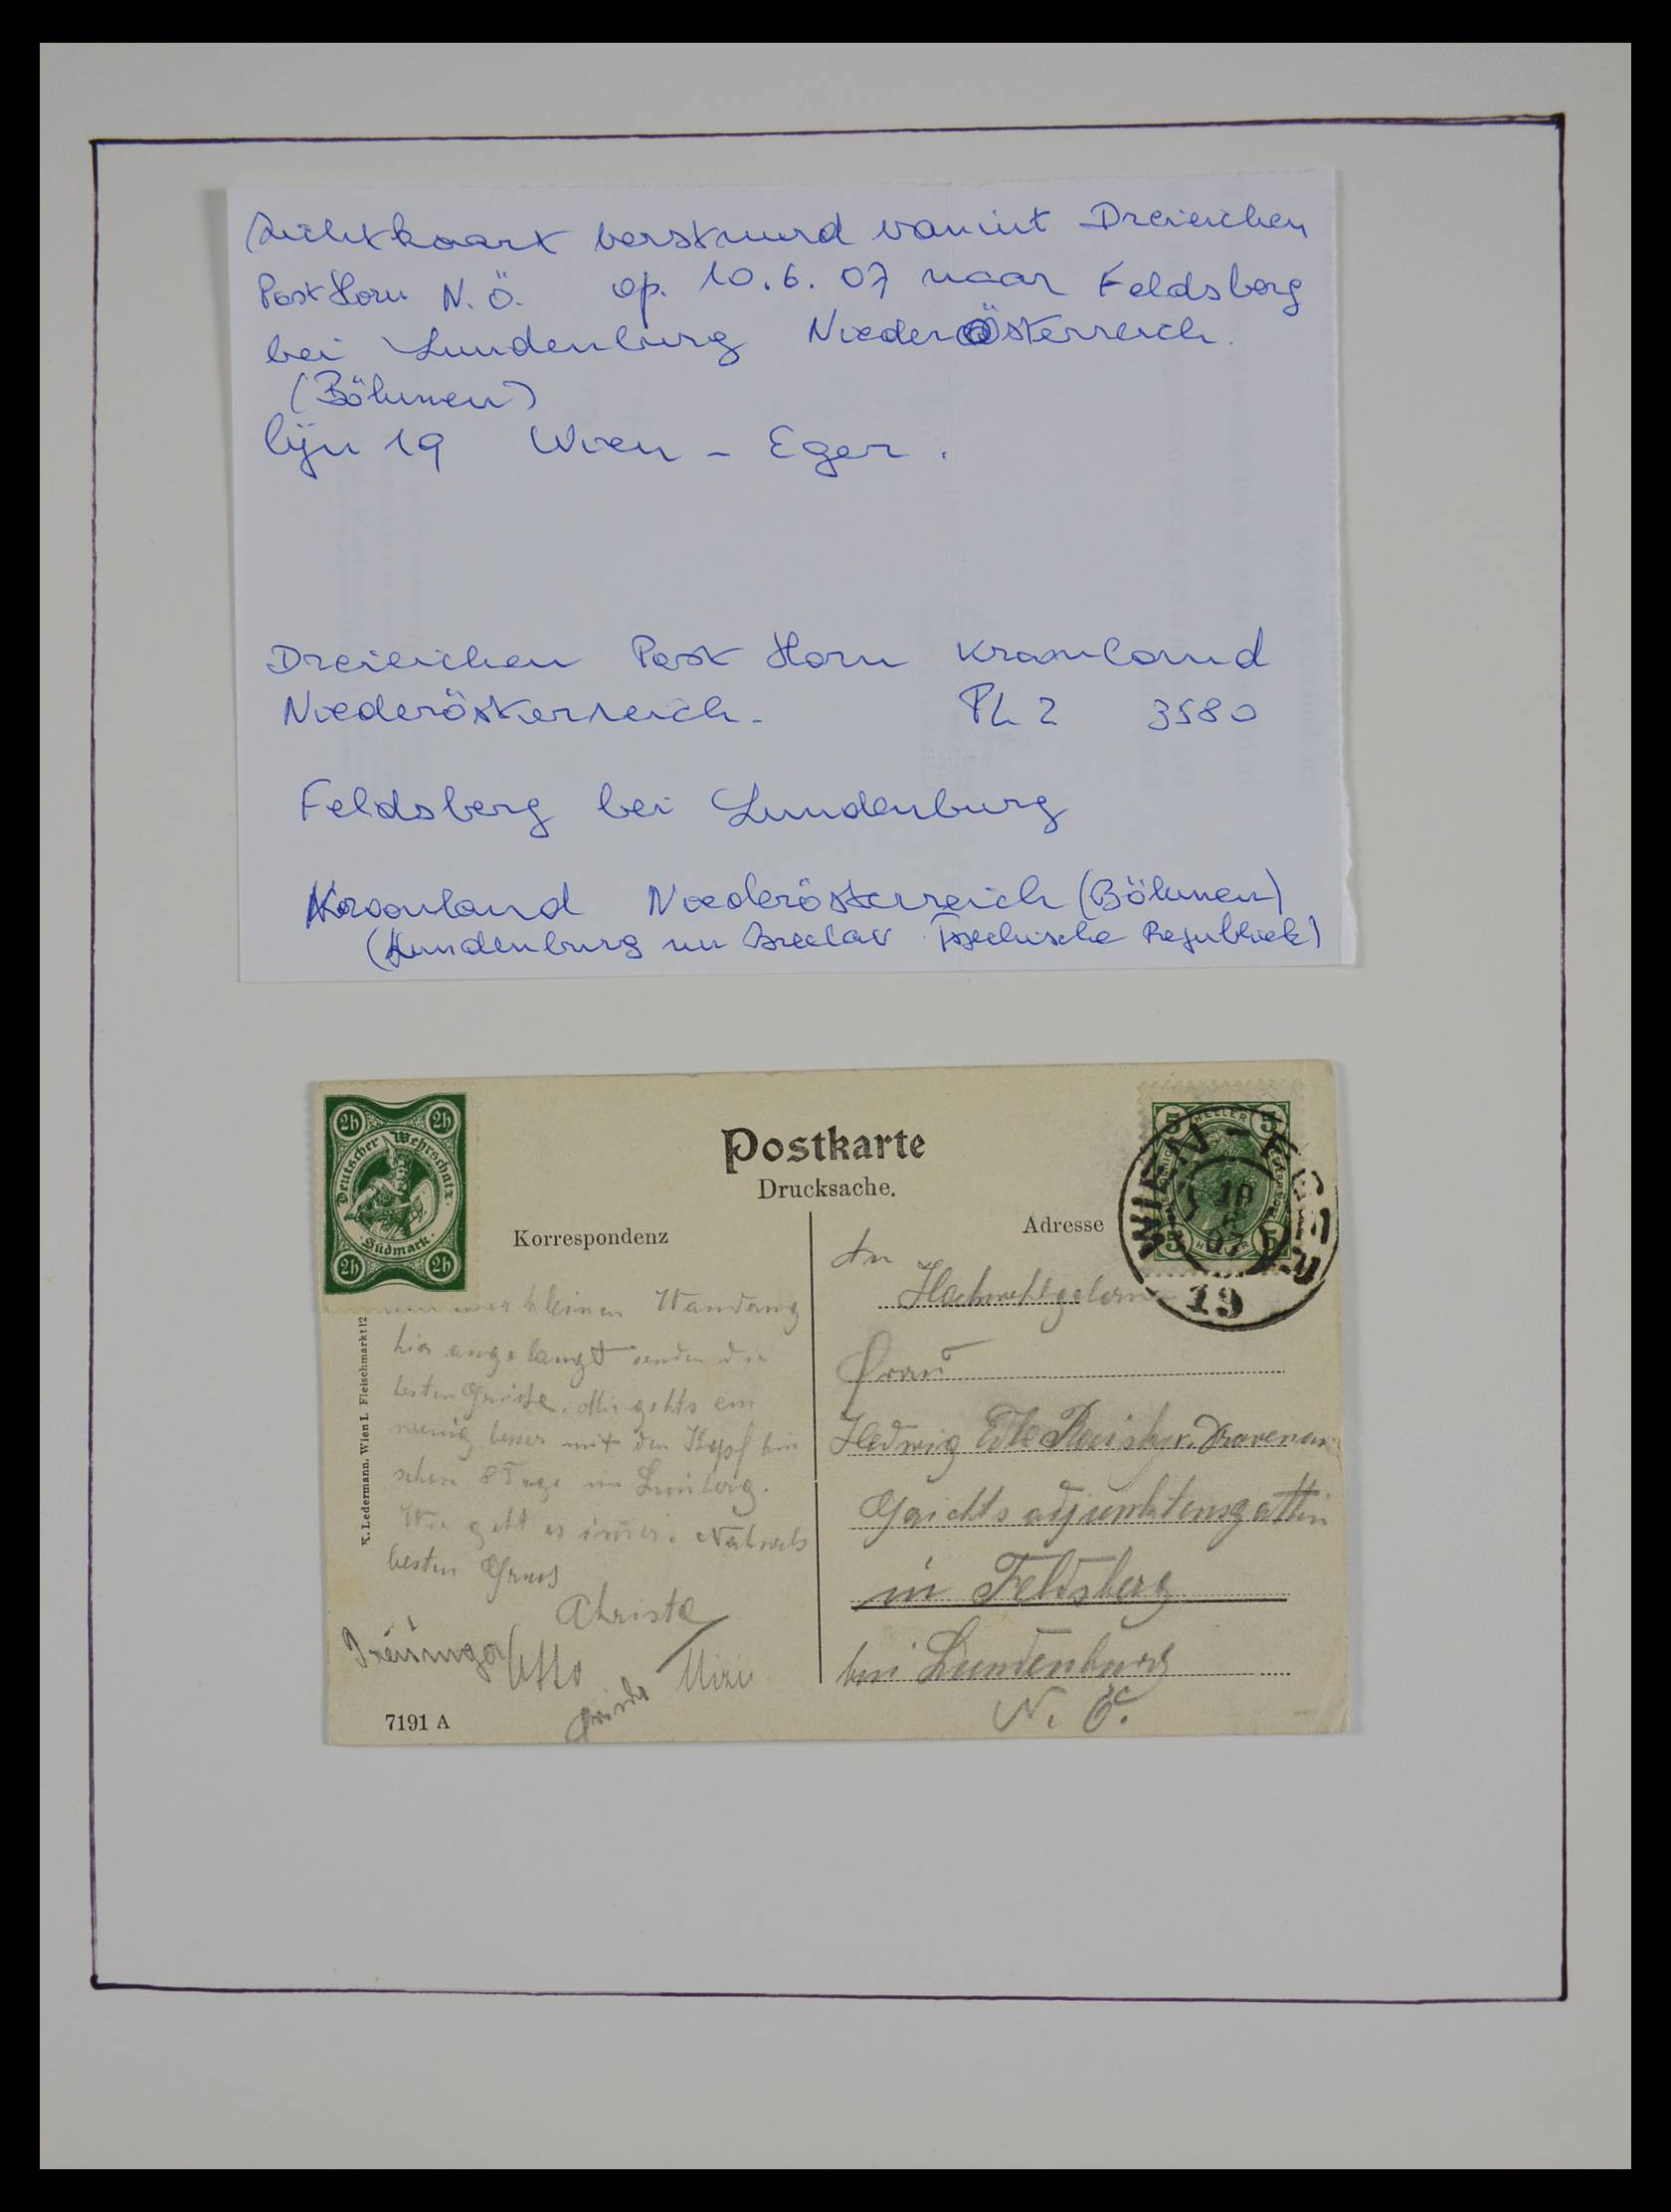 Zichtkaart verstuurd vanuit Dreieichen
Post Horn N.Ö. op. 10.6.07 naar Feldsberg
bei Lundenburg Niederösterreich.
(Böhmen)
lijn 19 Wien - Eger.
Dreieichen Post Horn Kroonland
Niederösterreich. PL 2 3580
Feldsberg bei Lundenburg
Kroonland Niederösterreich (Böhmen)
(Lundenburg nu Breclav Tsjechische Republiek)
2h 2h
Deutscher Wehrschatz
Südmark
2h 2h
Postkarte
Drucksache.
Korrespondenz
Adresse
5 HELLER 5
5 HELLER 5
WIEN - EGER
10
6
07
19
kleinen
hier angelangt senden die
besten Grüße. Mir gehts ein
wenig besser mit den Kopf bin
schon 8 Tage in
Wie geht es immer.
besten Gruss
Christa
Otto
Mizi
An
Hochwohlgeboren
Frau
Hedwig Edle
Gerichtsadjunktensgattin
in Feldsberg
bei Lundenburg
N. Ö.
K. Ledermann, Wien I. Fleischmarkt 12
7191 A